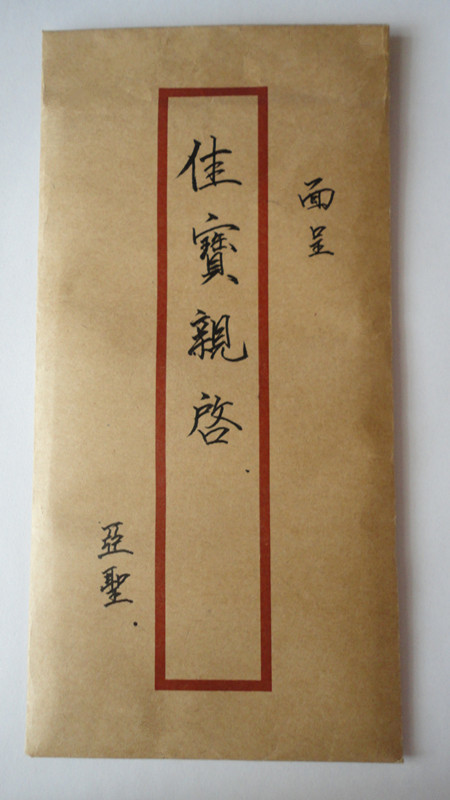 面呈
佳寶親啓
亞聖